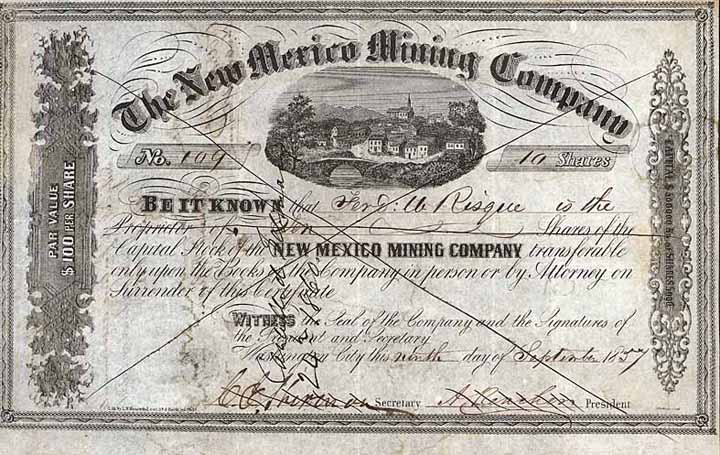 The New Mexico Mining Company
No. 109
10 Shares
PAR VALUE
$100 PER SHARE
BE IT KNOWN that Ferd: W Risque is the
Proprietor of Ten Shares of the
Capital Stock of the NEW MEXICO MINING COMPANY transferable
only upon the Books of the Company in person or by Attorney on
Surrender of this Certificate
WITNESS the Seal of the Company and the Signatures of
the President and Secretary.
Washington City this ninth day of September 1857
Secretary President